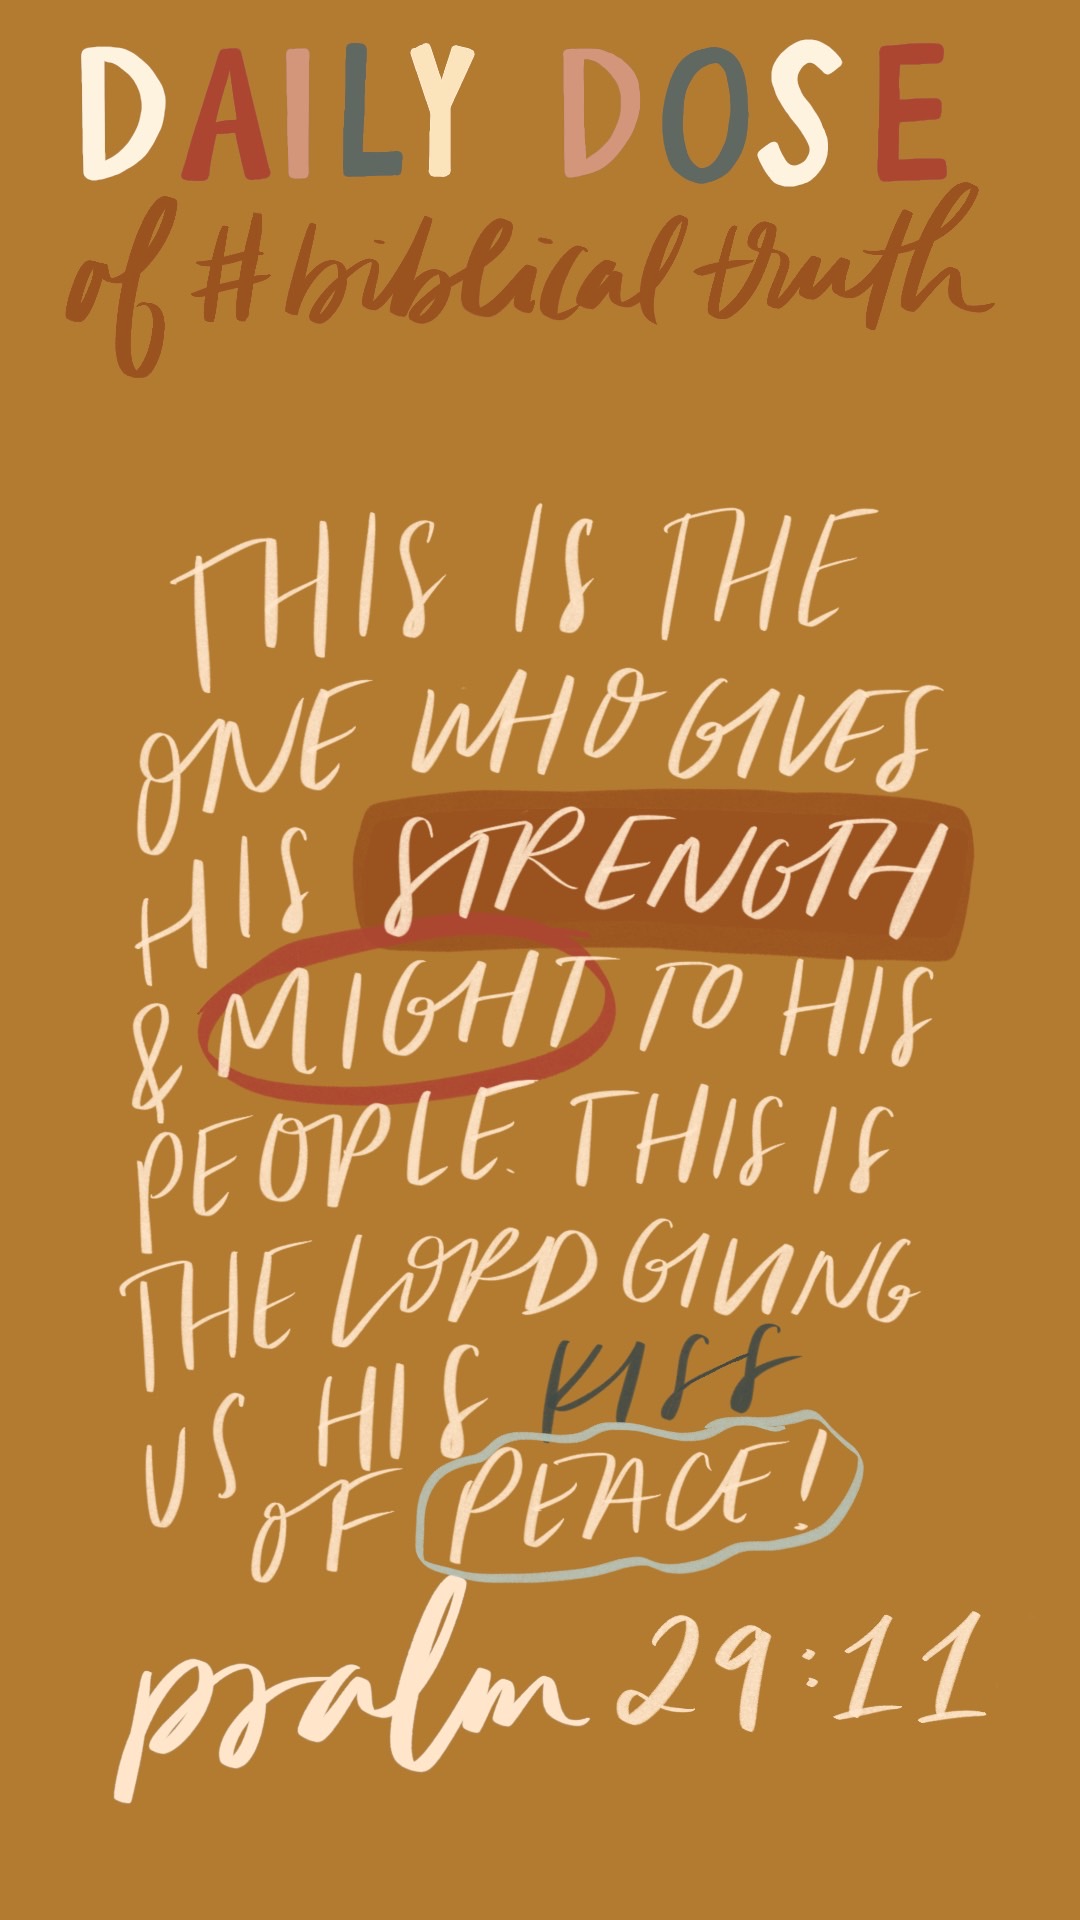 DAILY DOSE
of #biblical truth
THIS IS THE
ONE WHO GIVES
HIS STRENGTH
& MIGHT TO HIS
PEOPLE. THIS IS
THE LORD GIVING
US HIS KISS
OF PEACE!
psalm 29:11